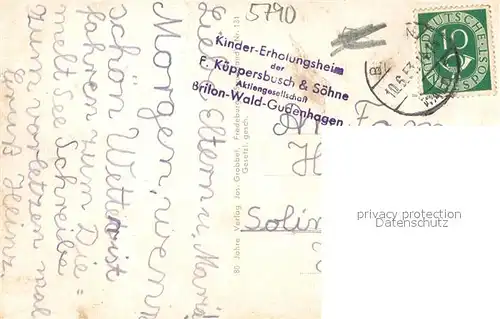 5790
Kinder-Erholungsheim
der
F. Küppersbusch & Söhne
Aktiengesellschaft
Brilon-Wald-Gudenhagen
DEUTSCHE
10
POST
10.6.53
Liebe Eltern u. Maria
Morgen, wenn
schön Wetter ist
fahren zum Die=
melt See. Schreibe
zum vorletzen mal
Gruß Heinz.
80 Jahre Verlag Jos. Grobbel, Fredeburg
Gesetzl. gesch.
Nr. 131
An
Fam
H
Solin
privacy protection
Datenschutz